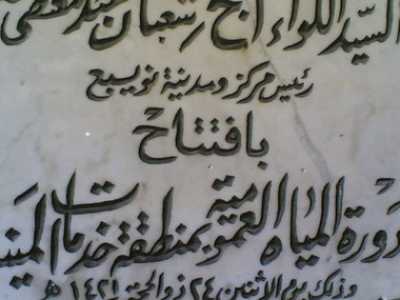 السيد اللواء أ.ح شعبان
رئيس مركز ومدينة نويبع
بافتتاح
دورة المياه العمومية بمنطقة خدمات المينـ
وذلك يوم الاثنين ٢٤ ذو الحجة ١٤٢١ هـ